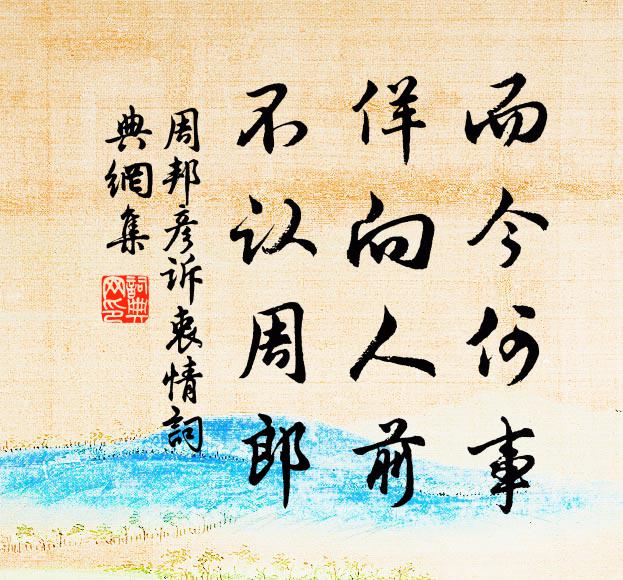 而今何事
佯向人前
不认周郎
周邦彦诉衷情詞
典網集
詞典网印